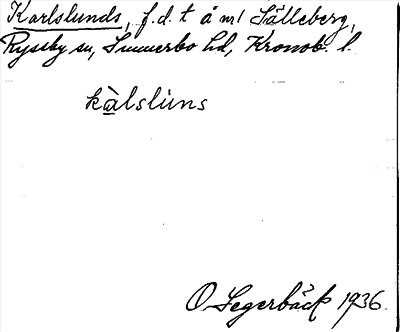 Karlslunds, f.d. t å nr 1 Sälleberg,
Ryssby sn, Sunnerbo hd, Kronob. l.
kàlslùns
O Segerbäck 1936.